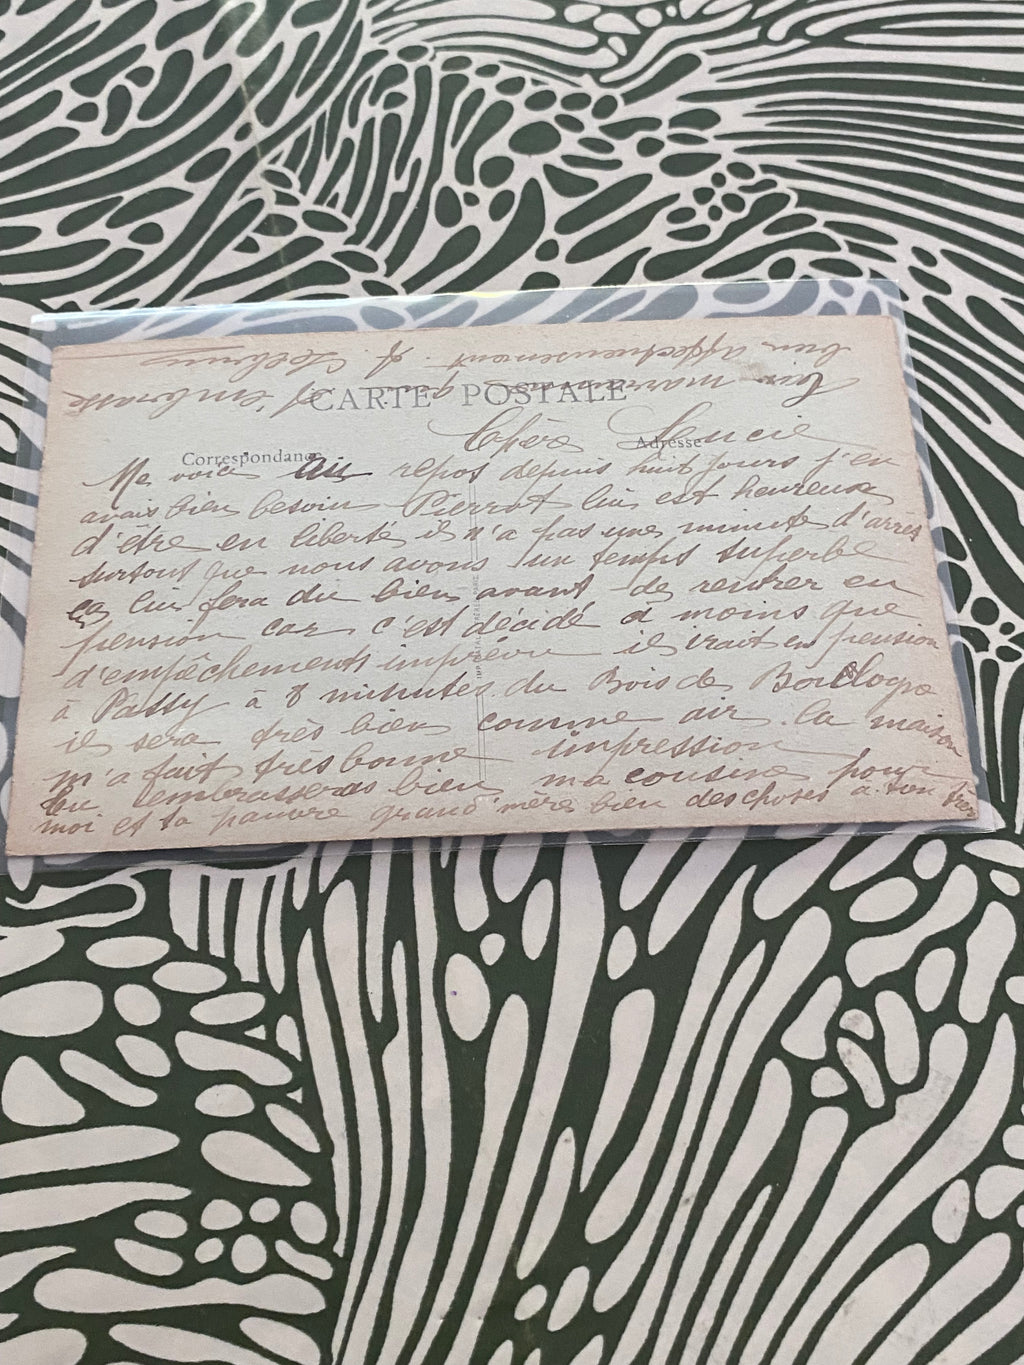 CARTE POSTALE
Correspondance
Adresse
Chère Lucie
Me voici au repos depuis huit jours j'en
avais bien besoin Pierrot lui est heureux
d'être en liberté il n'a pas une minute d'arrêt
surtout que nous avons un temps superbe
ça lui fera du bien avant de rentrer en
pension car c'est décidé à moins que
d'empêchements imprévu il irait en pension
à Passy à 8 minutes du Bois de Boulogne
il sera très bien comme air. la maison
m'a fait très bonne impression
tu embrasseras bien ma cousine pour
moi et ta pauvre grand'mère bien des choses à ton frère
marraine qui t'embrasse
bien affectueusement